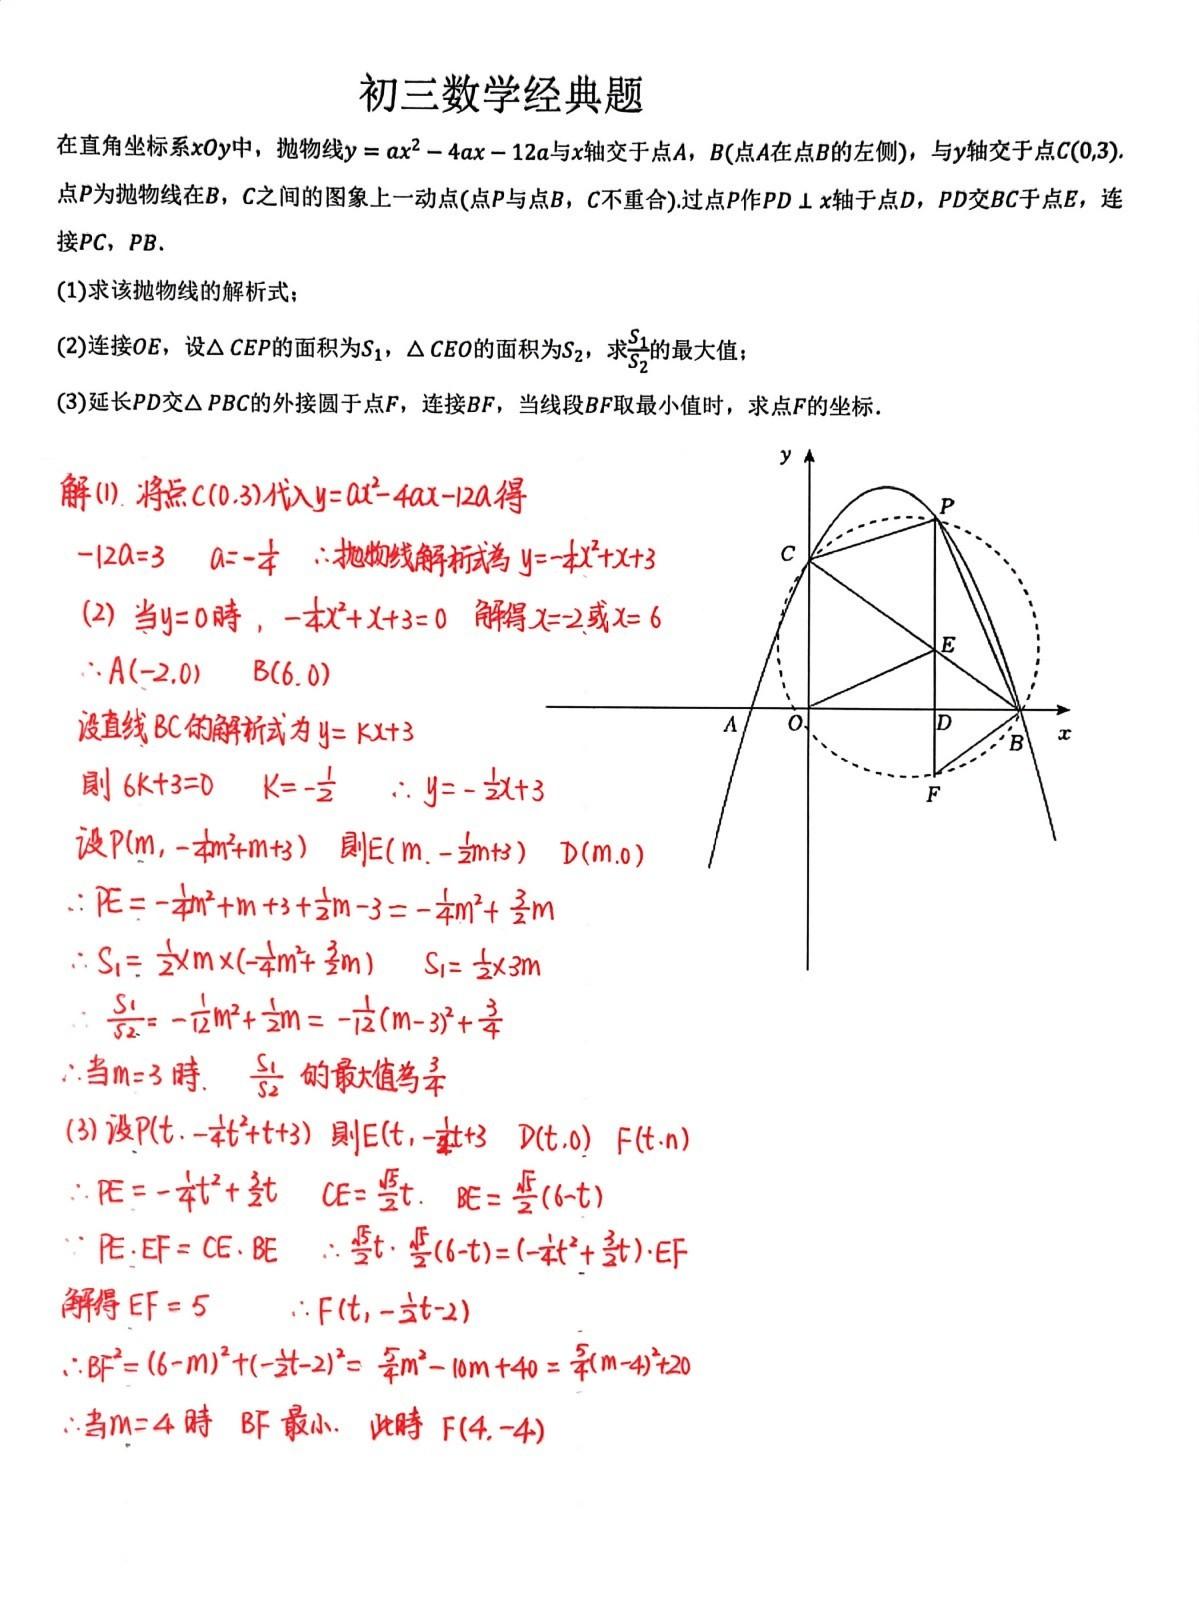 初三数学经典题
在直角坐标系xOy中，抛物线y = ax² − 4ax − 12a与x轴交于点A，B(点A在点B的左侧)，与y轴交于点C(0,3).
点P为抛物线在B，C之间的图象上一动点(点P与点B，C不重合).过点P作PD ⊥ x轴于点D，PD交BC于点E，连
接PC，PB.
(1)求该抛物线的解析式；
(2)连接OE，设△CEP的面积为S₁，△CEO的面积为S₂，求S₁/S₂的最大值；
(3)延长PD交△PBC的外接圆于点F，连接BF，当线段BF取最小值时，求点F的坐标.
y
P
C
E
A
O
D
B
x
F
解(1). 将点C(0.3)代入y=ax²-4ax-12a得
-12a=3 a=-1/4 ∴抛物线解析式為 y=-1/4x²+x+3
(2) 当y=0時, -1/4x²+x+3=0 解得x=-2或x=6
∴A(-2.0) B(6.0)
设直线BC的解析式为y=kx+3
則 6k+3=0 K=-1/2 ∴ y=-1/2x+3
设P(m, -1/4m²+m+3) 則E(m. -1/2m+3) D(m.0)
∴PE=-1/4m²+m+3+1/2m-3=-1/4m²+3/2m
∴S₁=1/2×m×(-1/4m²+3/2m) S₁=1/2×3m
∴ S₁/S₂=-1/12m²+1/2m=-1/12(m-3)²+3/4
∴当m=3時. S₁/S₂ 的最大值為3/4
(3)设P(t. -1/4t²+t+3) 則E(t, -1/2t+3 D(t.0) F(t.n)
∴PE=-1/4t²+3/2t CE=√5/2t. BE=√5/2(6-t)
∵ PE·EF=CE·BE ∴√5/2t·√5/2(6-t)=(-1/4t²+3/2t)·EF
解得EF=5 ∴F(t, -1/2t-2)
∴BF²=(6-m)²+(-1/2t-2)²=5/4m²-10m+40=5/4(m-4)²+20
∴当m=4時 BF最小. 此時 F(4.-4)